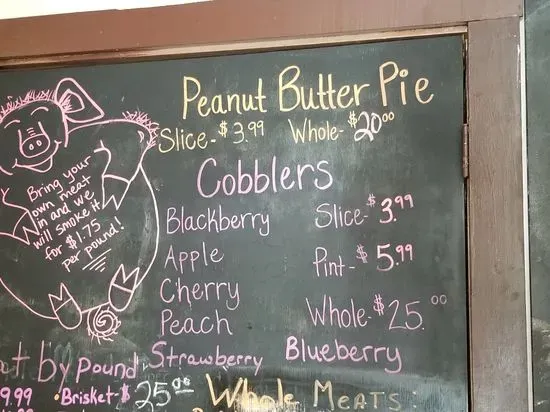 Peanut Butter Pie
Slice - $3.99 Whole - $20.00
Cobblers
Blackberry Slice - $3.99
Apple Pint - $5.99
Cherry
Peach Whole - $25.00
Strawberry Blueberry
Bring your
own meat
in and we
will smoke it
for $1.75
per pound!
by pound
9.99 • Brisket - $25.00
Whole Meats: